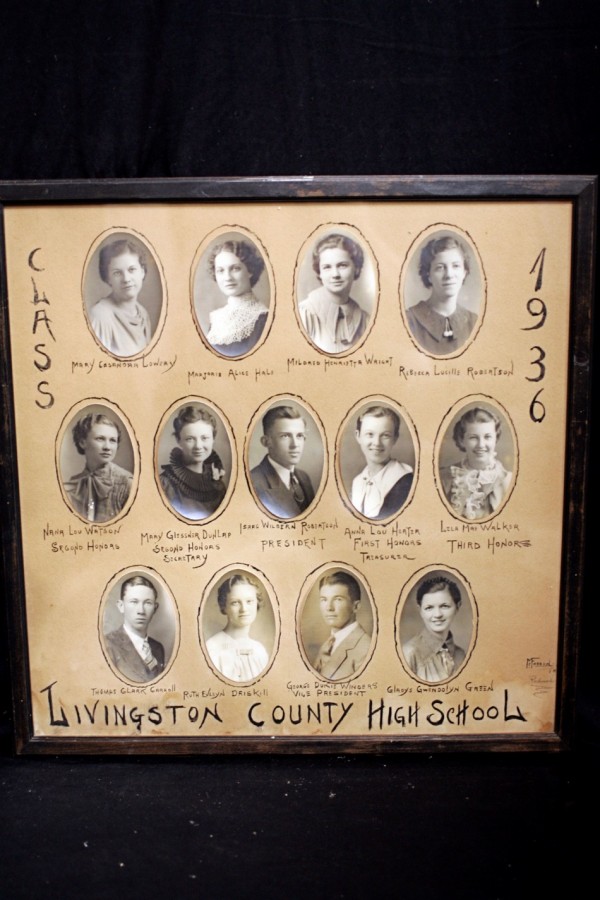 CLASS
1936
MARY CASANDRA LOWERY
MARJORIE ALICE HALE
MILDRED HENRIETTA WRIGHT
REBECCA LUCILLE ROBERTSON
NANA LOU WATSON
SECOND HONORS
MARY GLESSNER DUNLAP
SECOND HONORS
SECRETARY
WILBERN ROBERTSON
PRESIDENT
ANNA LOU HORTER
FIRST HONORS
TREASURER
LILA MAI WALKER
THIRD HONORS
THOMAS CLARK CARROLL
RUTH EVELYN DRISKILL
GEORGE WINDERS
VICE PRESIDENT
GLADYS GWENDOLYN GREEN
LIVINGSTON COUNTY HIGH SCHOOL